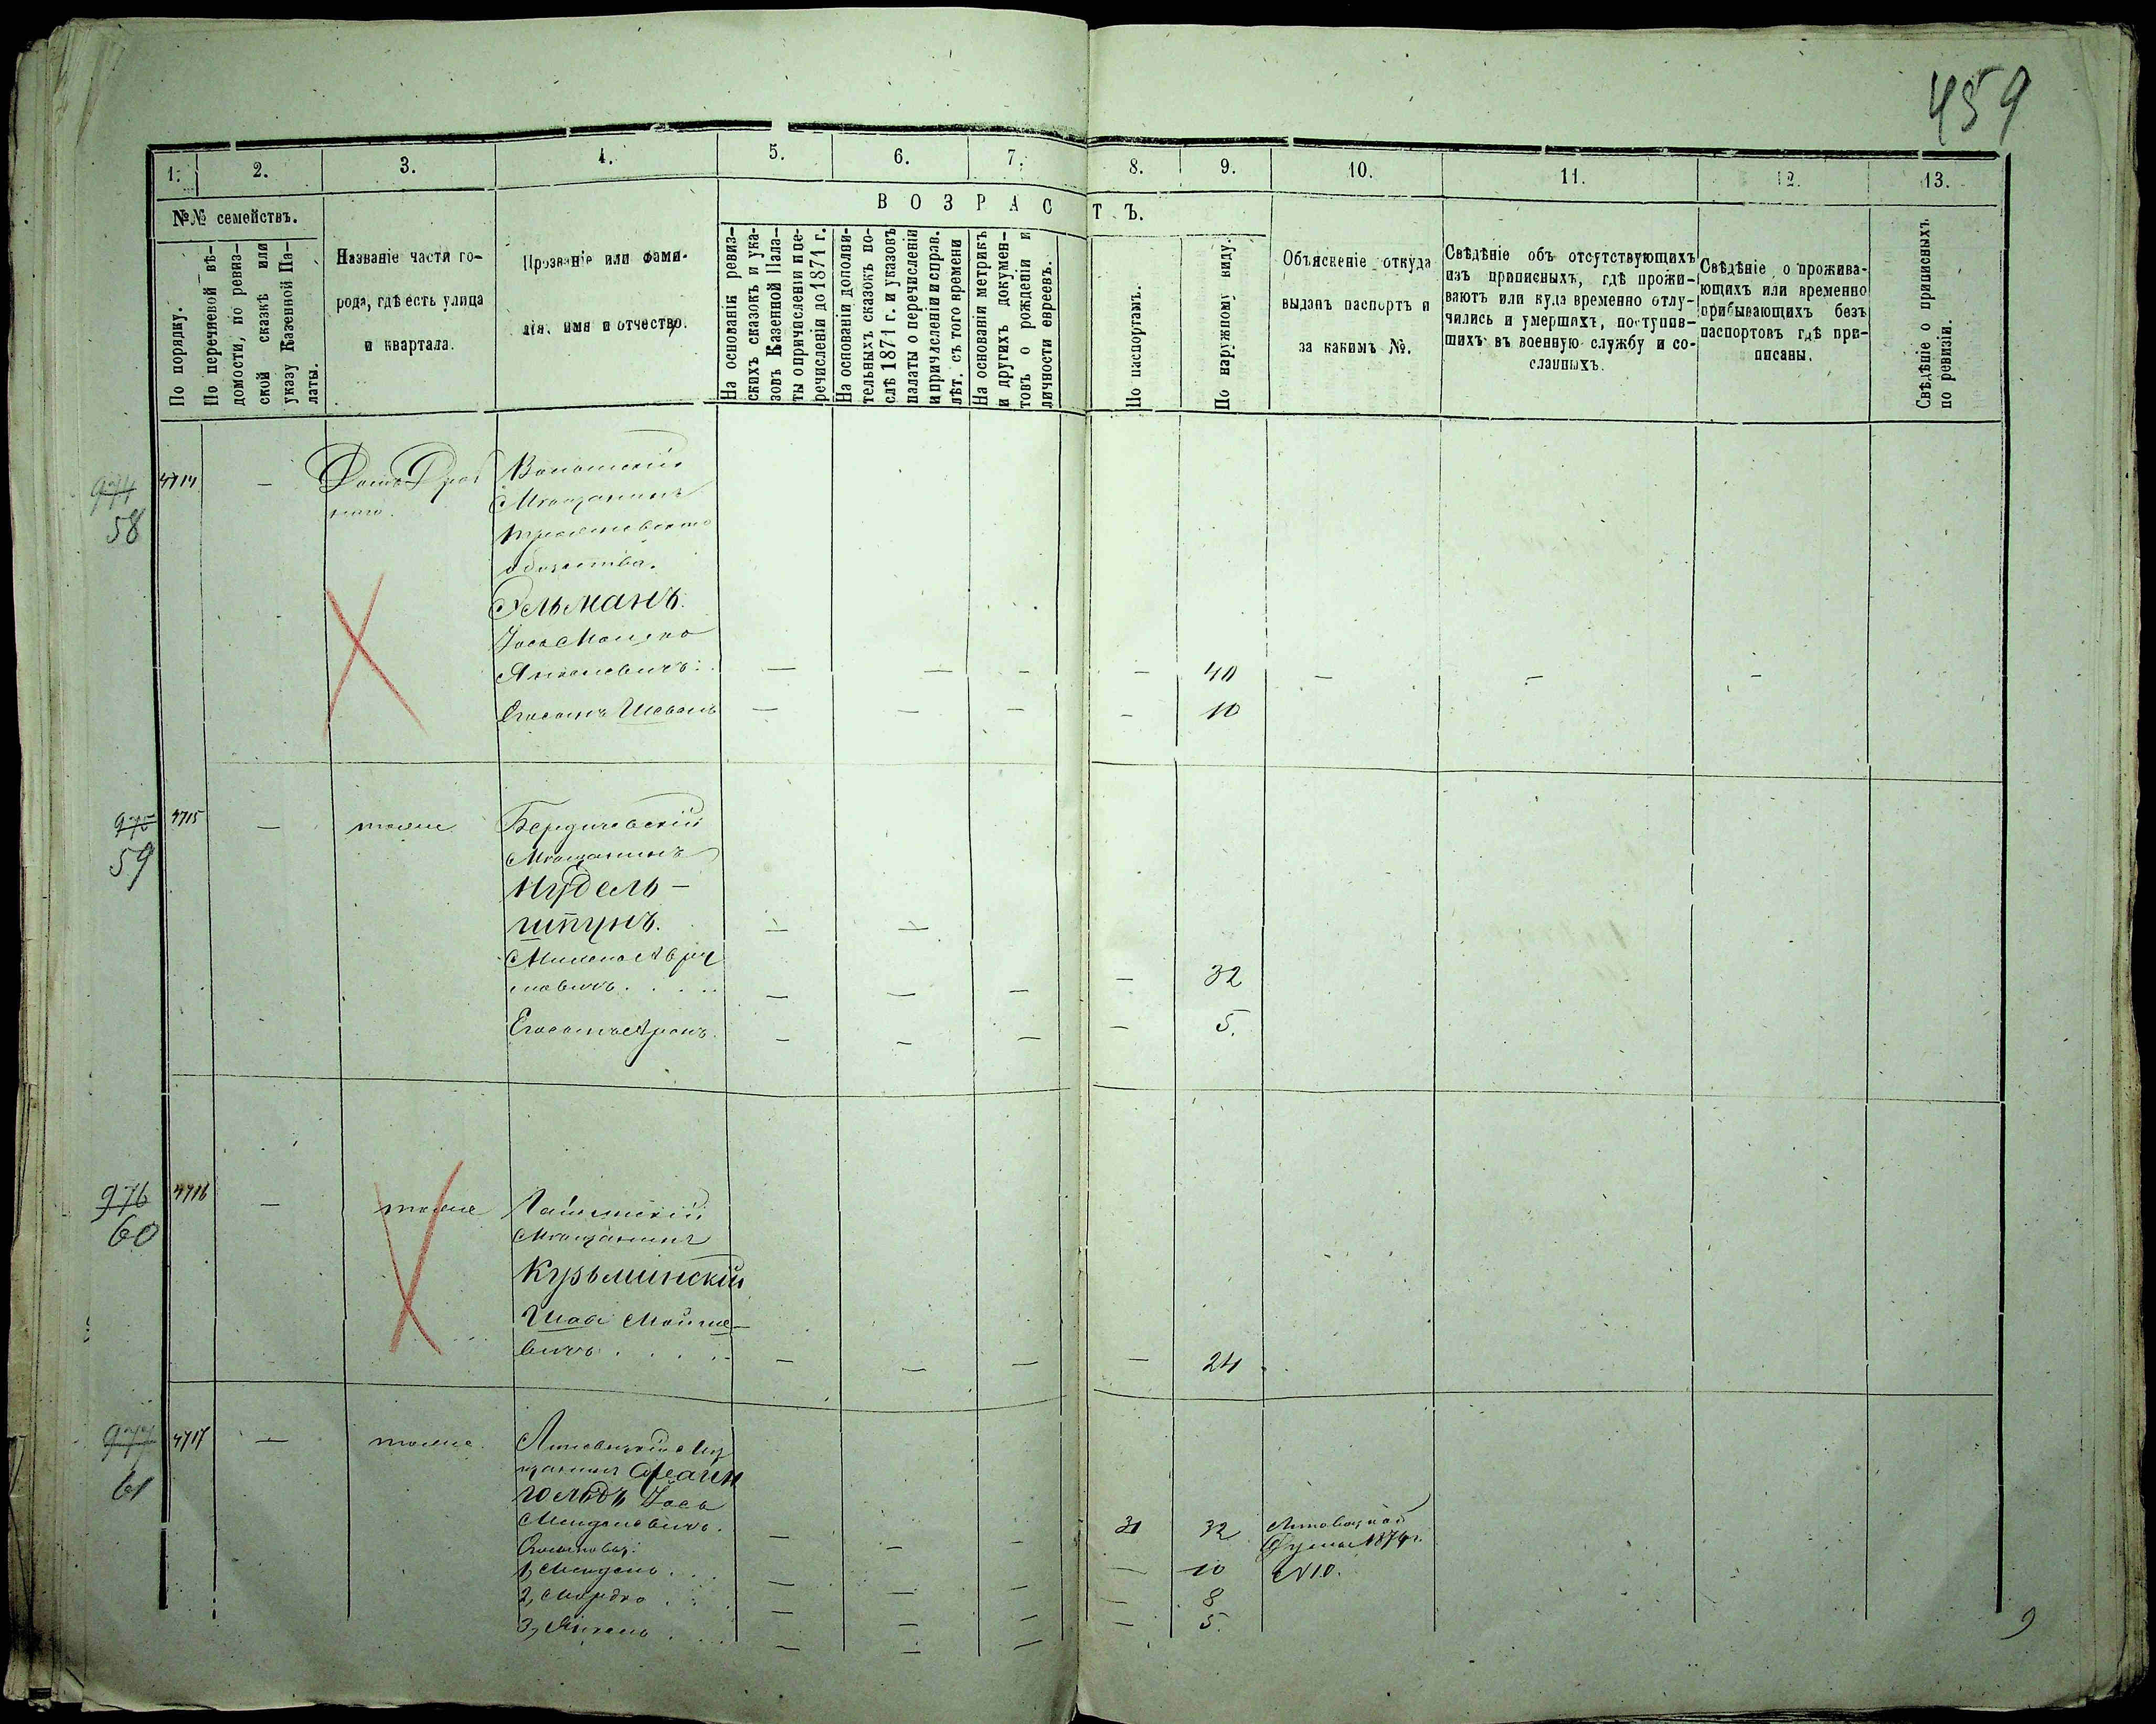 459
1. 2. 3. 4. 5. 6. 7. 8. 9. 10. 11. 12. 13.
№№ семействъ.
ВОЗРАСТЪ.
По порядку.
По перечневой вѣ-
домости, по ревиз-
ской сказкѣ или
указу Казенной Па-
латы.
Названіе части го-
рода, гдѣ есть улица
и квартала.
Прозваніе или фами-
лія, имя и отчество.
На основаніи ревиз-
скихъ сказокъ и ука-
зовъ Казенной Пала-
ты о причисленіи и пе-
речисленіи до 1871 г.
На основаніи дополни-
тельныхъ сказокъ по-
слѣ 1871 г. и указовъ
палаты о перечисленіи
и причисленіи и справ.
лѣт. съ того времени
На основаніи метрикъ
и другихъ докумен-
товъ о рожденіи и
личности евреевъ.
По паспортамъ.
По наружному виду.
Объясненіе откуда
выданъ паспортъ и
за какимъ №.
Свѣдѣніе объ отсутствующихъ
изъ приписныхъ, гдѣ прожи-
ваютъ или куда временно отлу-
чились и умершихъ, поступив-
шихъ въ военную службу и со-
сланныхъ.
Свѣдѣніе о прожива-
ющихъ или временно
прибывающихъ безъ
паспортовъ гдѣ при-
писаны.
Свѣдѣніе о приписныхъ
по ревизіи.
974
58
4714 —
Мѣщанинъ
общества.
Гельманъ
Іось Мошко
Янкелевичъ — — — — 40 — — —
Его сынъ Шевель — — — — 10
975
59
4715 — тоже Бердичевскій
Мѣщанинъ
Нудель-
штунъ. — —
32
Его сынъ Аронъ. — — — — 5.
976
60
4716 — тоже
Мѣщанинъ
Кузьминскій
Шая Мошке-
вичъ — — — — 24
977
61
4717 — тоже. Липовецкій Мѣ
щанинъ Фейгин
гольдъ Іось
Менделевичъ. — — — 31 32 Липовецкой
Думы 1874 г.
№ 10.
Сыновья:
1, Мендель — — — — 10
2, Мордко — — — — 8
3, Янкель — — — — 5.
9